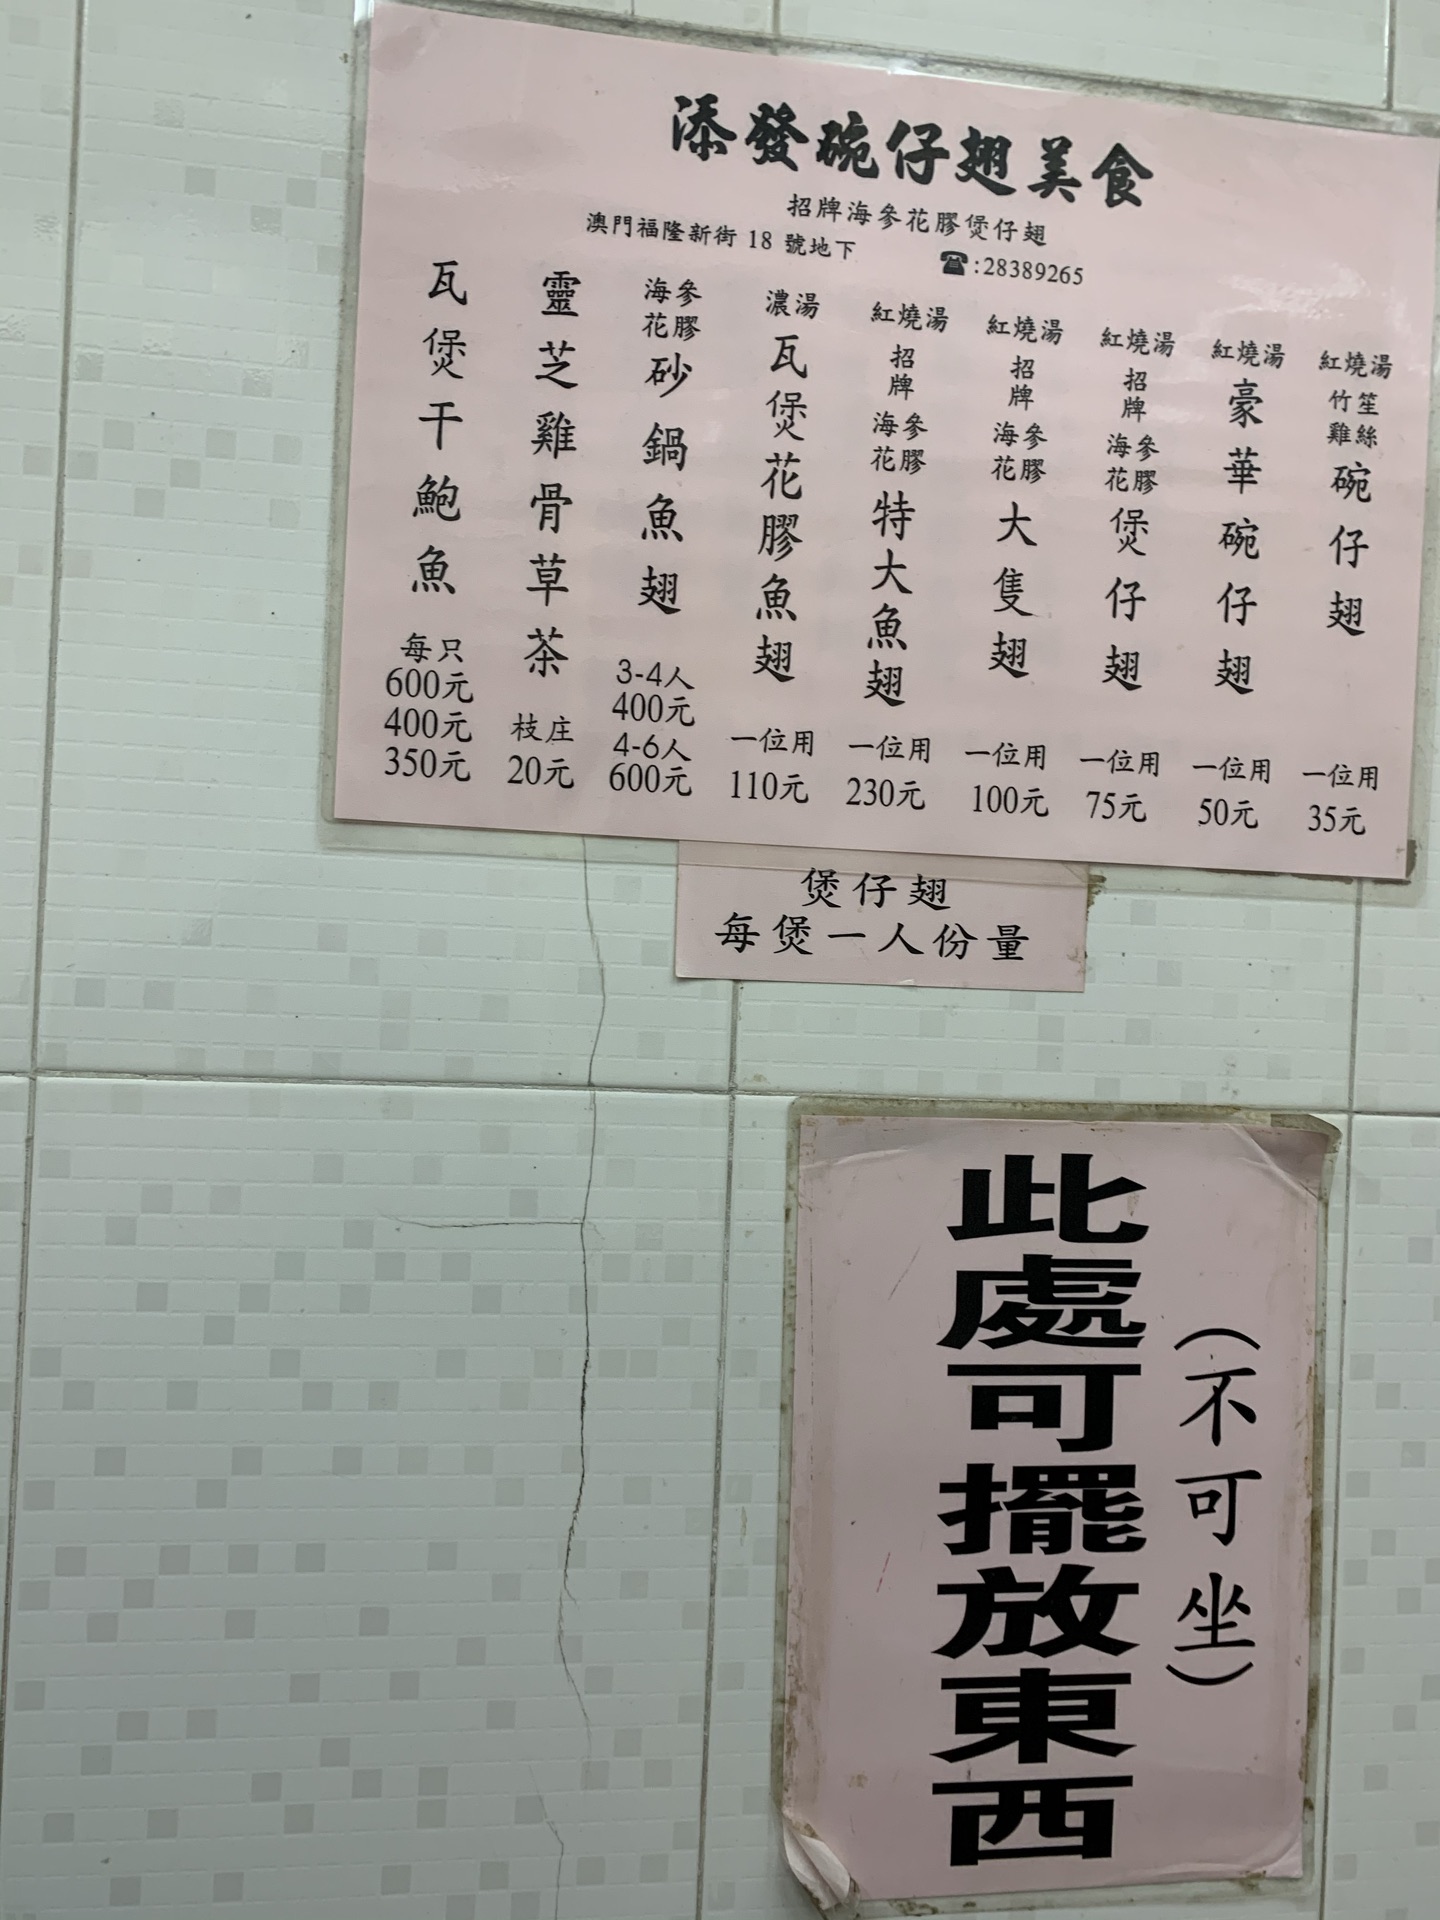 添發碗仔翅美食
招牌海參花膠煲仔翅
澳門福隆新街 18 號地下
☎:28389265
紅燒湯
竹笙
雞絲
碗仔翅
一位用
35元
紅燒湯
豪華碗仔翅
一位用
50元
紅燒湯
招牌
海參
花膠
煲仔翅
一位用
75元
紅燒湯
招牌
海參
花膠
大隻翅
一位用
100元
紅燒湯
招牌
海參
花膠
特大魚翅
一位用
230元
濃湯
瓦煲花膠魚翅
一位用
110元
海參
花膠
砂鍋魚翅
3-4人
400元
4-6人
600元
靈芝雞骨草茶
枝庄
20元
瓦煲干鮑魚
每只
600元
400元
350元
煲仔翅
每煲一人份量
(不可坐)
此處可擺放東西